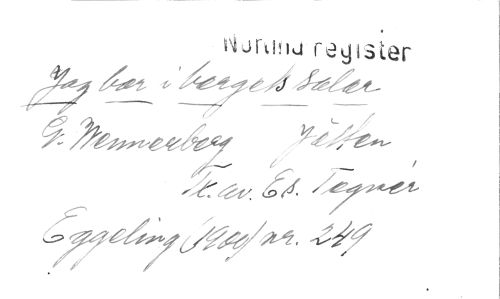 Norlind register
Jag bor i bergets salar
G. Wennerberg Jätten
Tx. av. Es. Tegnér
Eggeling (1909) nr. 249